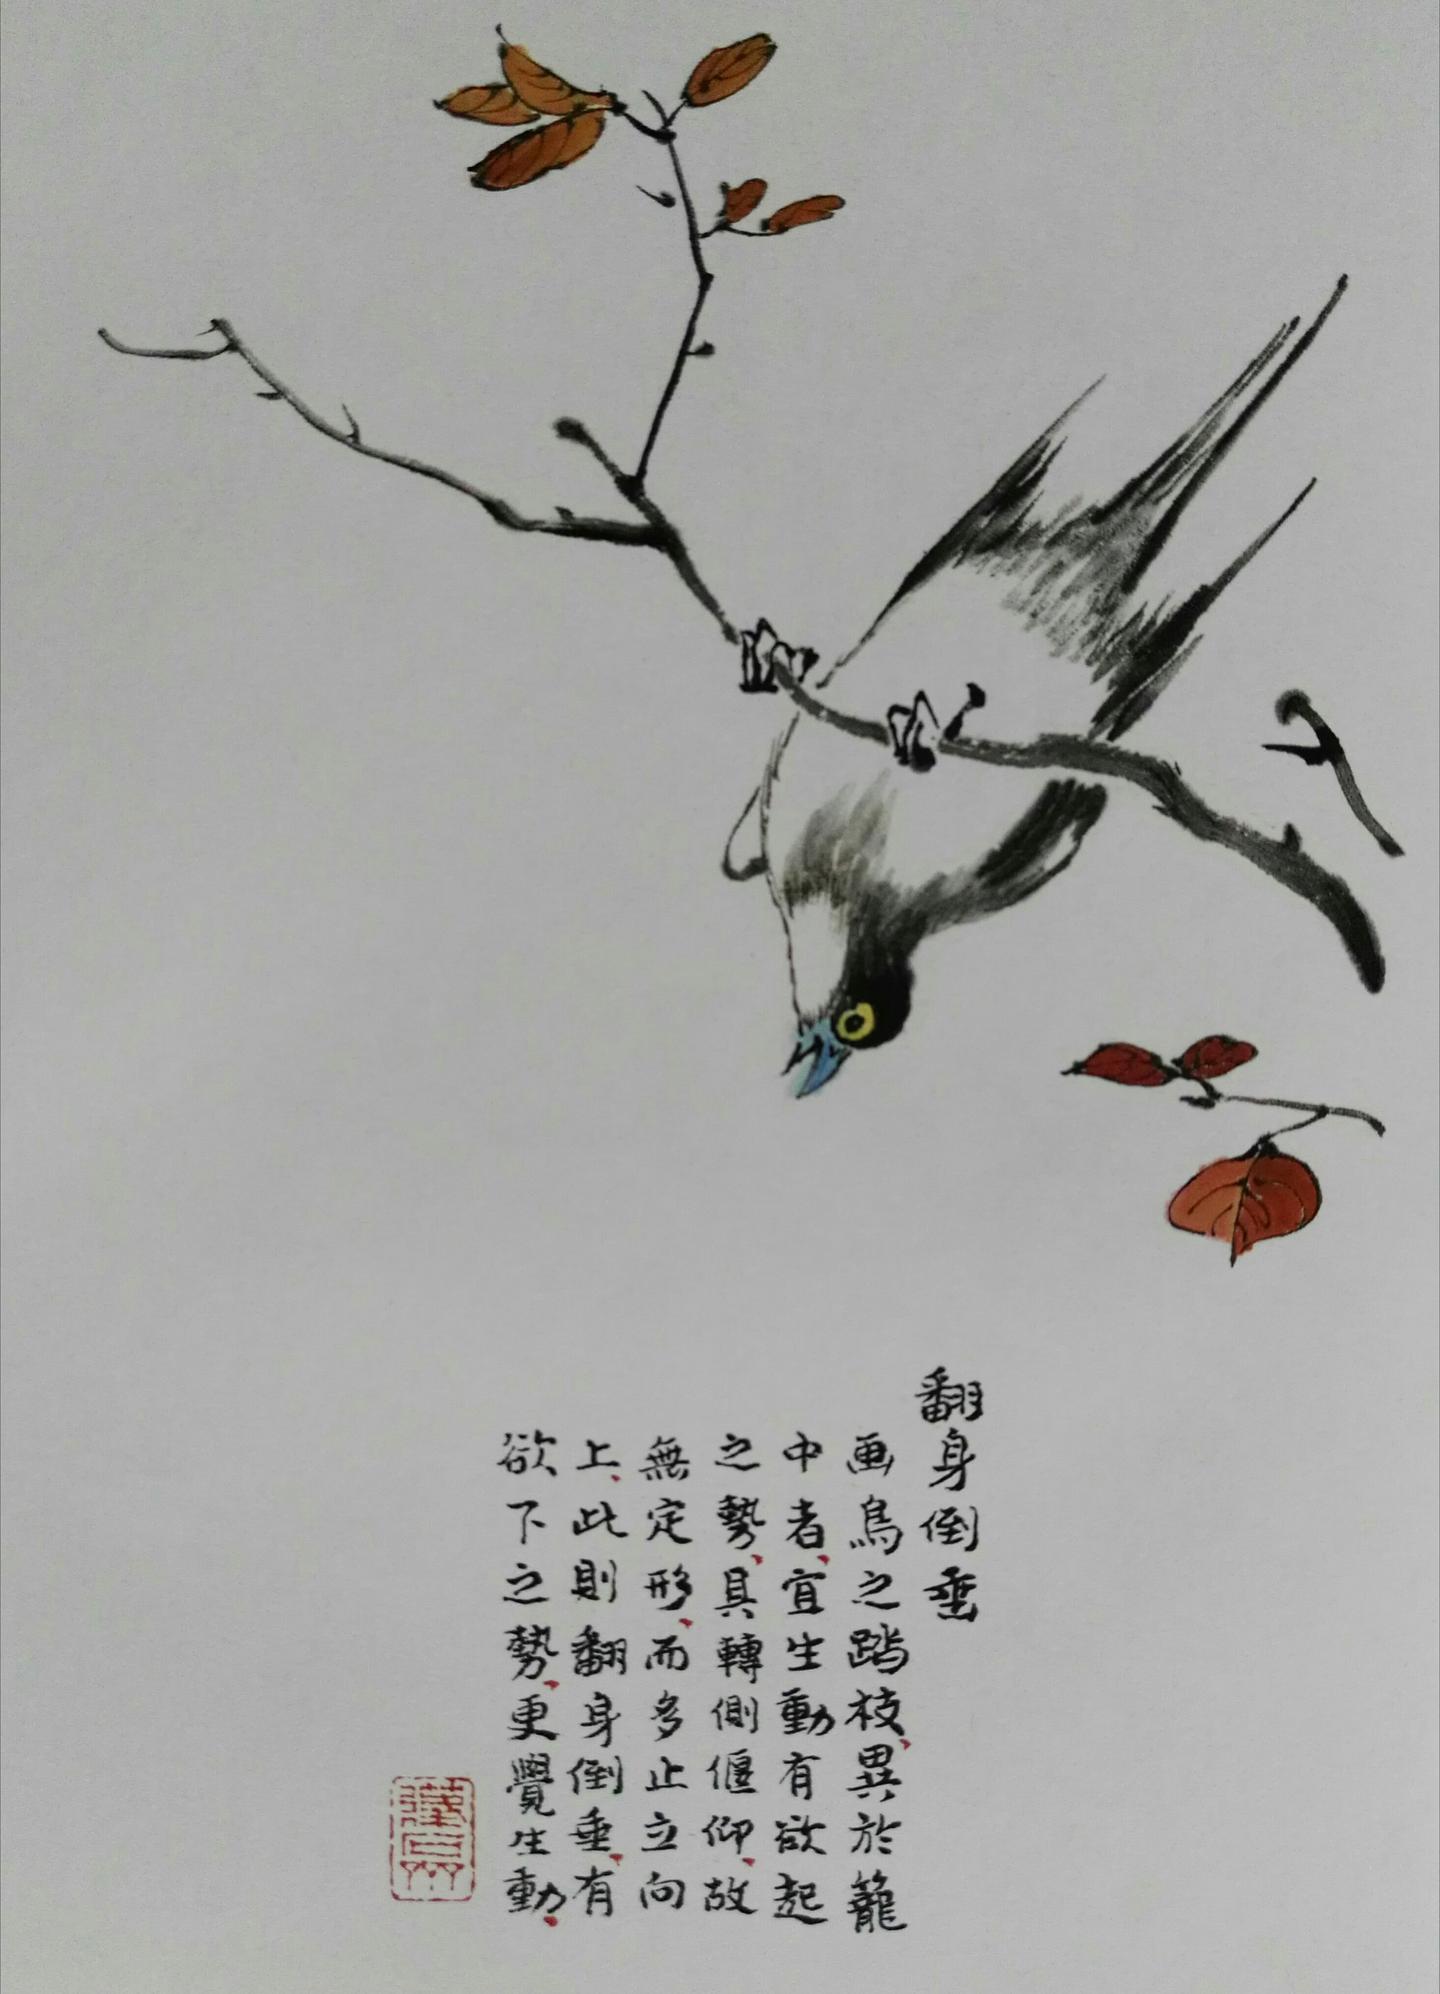 翻身倒垂
画鳥之踏枝異於籠
中者宜生動有欲起
之勢具轉側偃仰故
無定形而多止立向
上此則翻身倒垂有
欲下之勢更覺生動